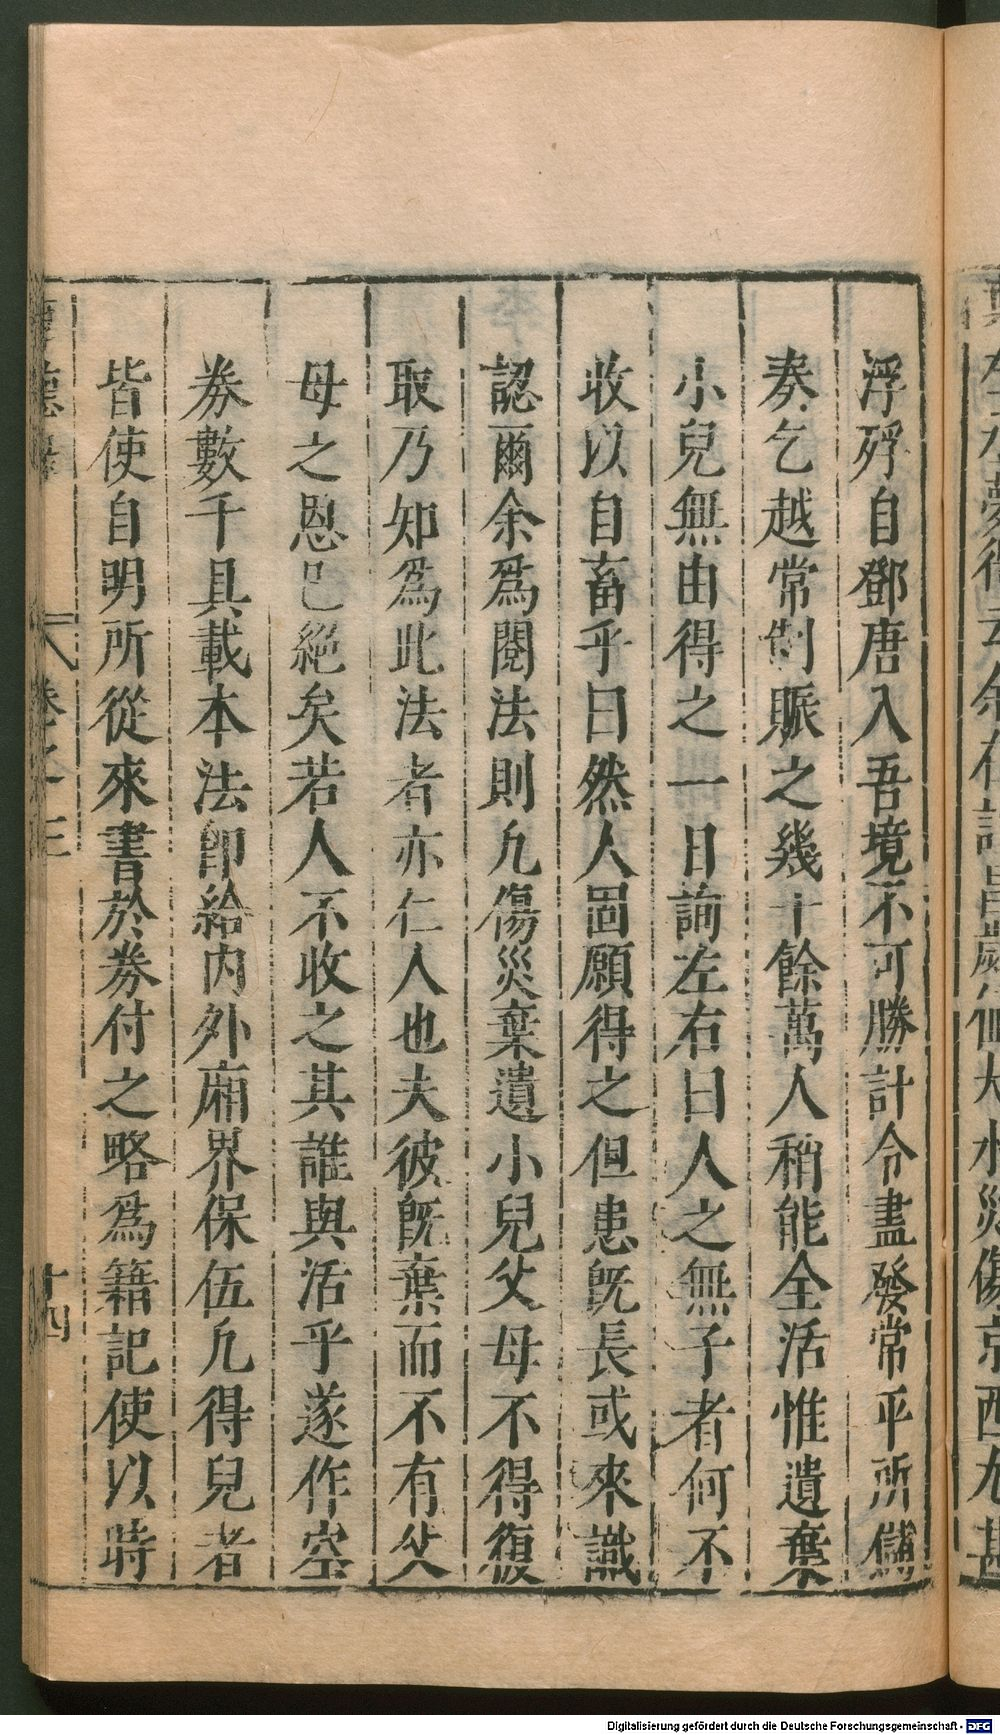 浮殍自鄧唐入吾境不可勝計令盡發常平所儲
奏乞越常制賑之幾十餘萬人稍能全活惟遺棄
小兒無由得之一日詢左右曰人之無子者何不
收以自畜乎曰然人固願得之但患旣長或來識
認爾余爲閱法則凢傷災棄遺小兒父母不得復
取乃知爲此法者亦仁人也夫彼旣棄而不有父
母之恩已絶矣若人不收之其誰與活乎遂作空
券數千具載本法卽給内外廂界保伍凢得兒者
皆使自明所從來書於券付之略爲籍記使以時
卷之三
十四
Digitalisierung gefördert durch die Deutsche Forschungsgemeinschaft - DFG